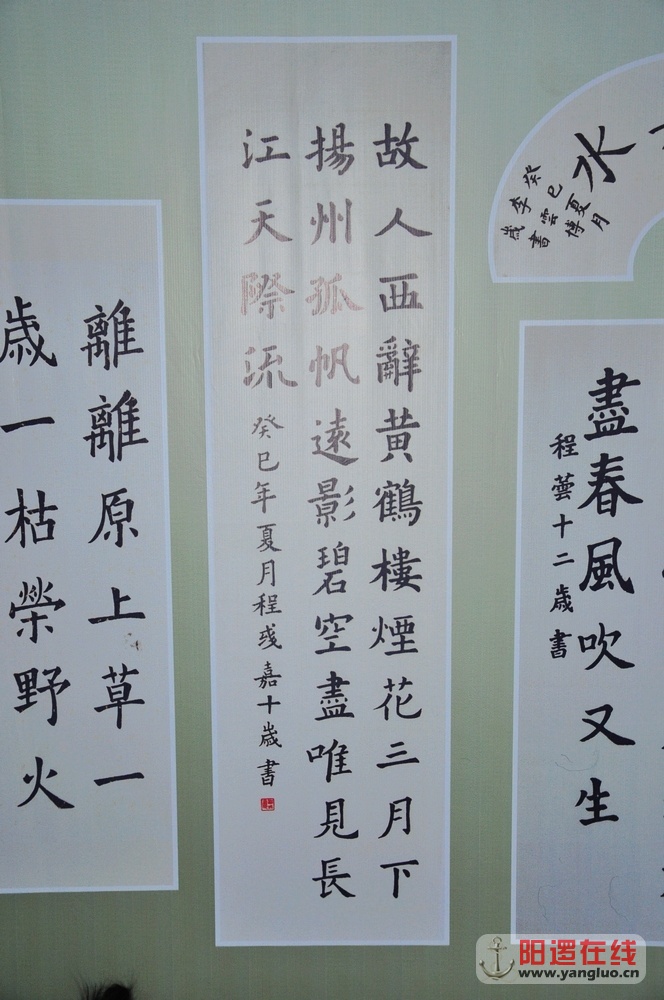 水
癸巳夏月
李雲博
歲書
盡春風吹又生
程蕓十二歲書
故人西辭黄鶴樓煙花三月下
揚州孤帆遠影碧空盡唯見長
江天際流
癸巳年夏月程彧嘉十歲書
離離原上草一
歳一枯榮野火
阳逻在线
www.yangluo.cn